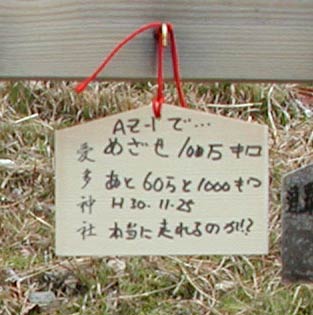 AZ-1で…
めざせ 100万キロ
あと60万と1000キロ
H30.11.25
本当に走れるのか!?
愛多神社